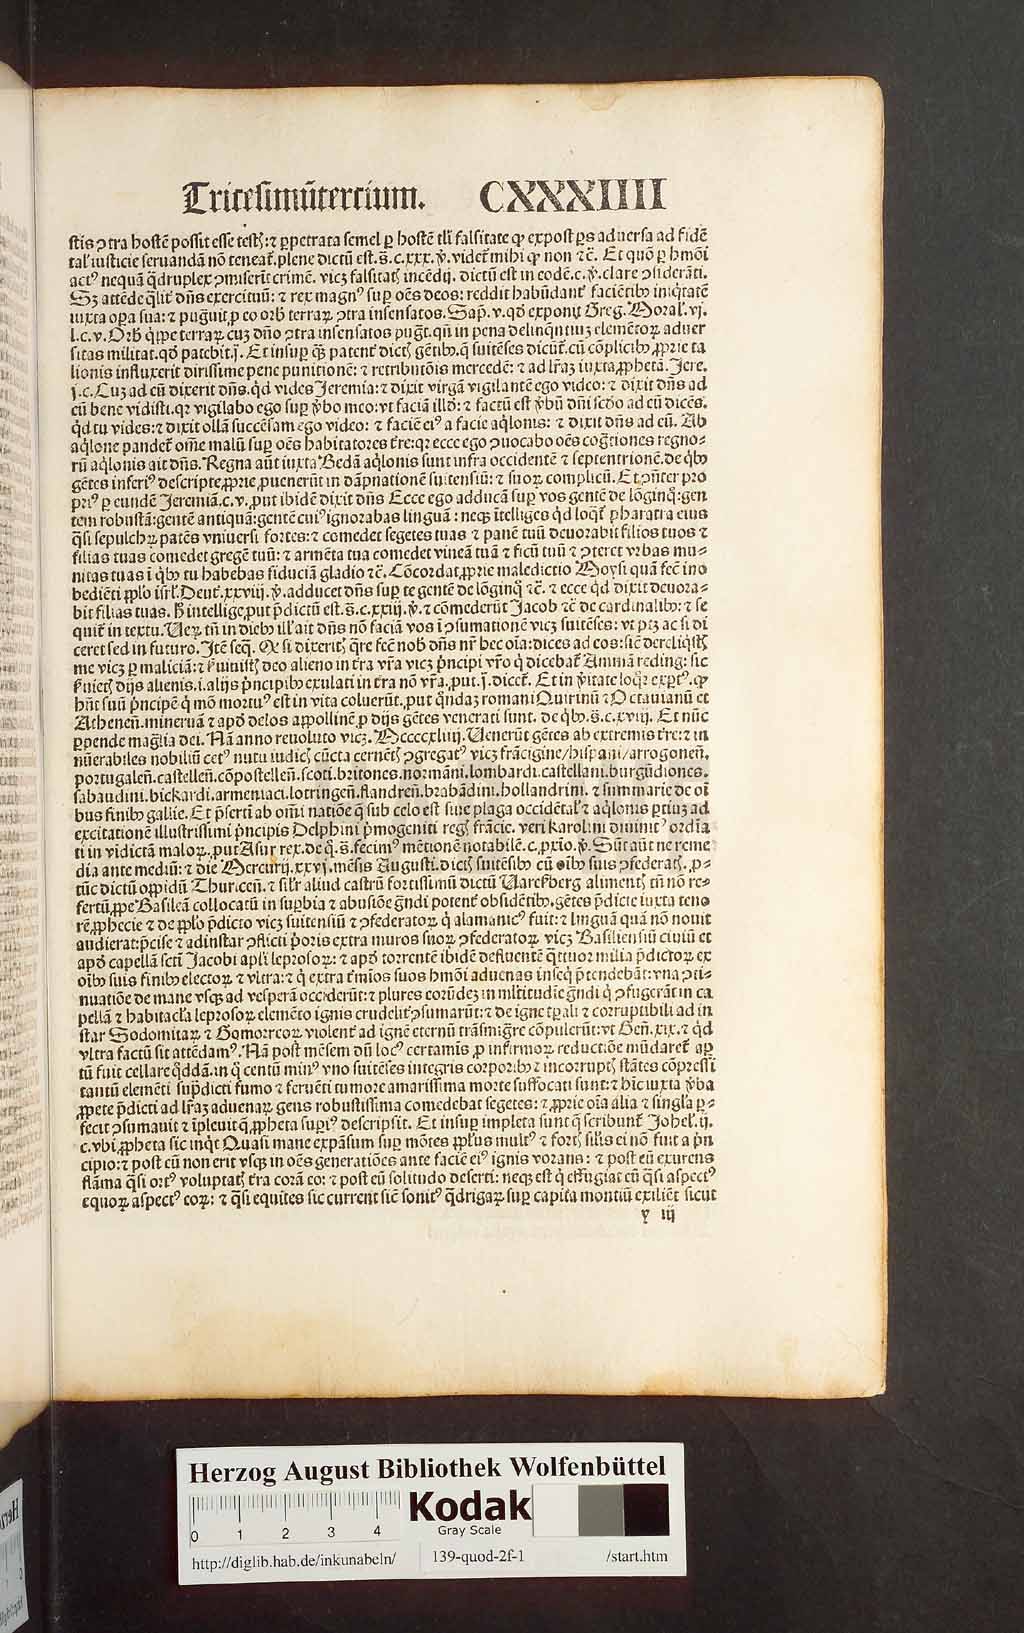 Tricesimũtercium. CXXXIIII
stis ꝯtra hostẽ possit esse testꝭ: ⁊ ꝑpetrata semel ꝑ hostẽ tli falsitate ꝙ expost ꝑs aduersa ad fidẽ
talꝰ iusticie seruandã nõ teneat̃. plene dictũ est. s̃. c. xxx. ꝟ. videt̃ mihi ꝙ non ⁊c̃. Et quõ ꝑ hmõi
actꝰ nequã q̃druplex ꝯmiserũt crimẽ. vicꝫ falsitatꝭ incẽdij. dictũ est in eodẽ. c. ꝟ. clare ꝯsiderãti.
Sꝫ attẽde q̃lit̃ dñs exercituũ: ⁊ rex magnꝰ suꝑ oẽs deos: reddit habũdant̃ faciẽtibꝰ iniq̃tatẽ
iuxta oꝑa sua: ⁊ pugñit ꝓ eo orbꝭ terraꝝ ꝯtra insensatos. Sap̃. v. qđ exponit Greg. Moral̃. vj.
l. c. v. Orbꝭ q̃ppe terraꝝ cuꝫ dño ꝯtra insensatos pug̃t. qñ in pena delinq̃ntiuꝫ elemẽtoꝝ aduer
sitas militat. qđ patebit. j̃. Et insuꝑ q̃ꝫ patent̃ dictꝭ gẽtibꝰ. q̃ suitẽses dicũt̃. cũ cõplicibꝰ ꝓprie ta
lionis influxerit dirissime pene punitionẽ: ⁊ retributõis mercedẽ: ⁊ ad lr̃aꝫ iuxta ꝓphetã. Jere.
j. c. Cuꝫ ad eũ dixerit dñs. q̃d vides Jeremia: ⁊ dixit virgã vigilantẽ ego video: ⁊ dixit dñs ad
eũ bene vidisti. qꝛ vigilabo ego suꝑ ꝟbo meo: vt faciã illđ: ⁊ factũ est ꝟbũ dñi scđo ad eũ dicẽs.
q̃d tu vides: ⁊ dixit ollã succẽsam ego video: ⁊ faciẽ eiꝰ a facie aq̃lonis: ⁊ dixit dñs ad eũ. Ab
aq̃lone pandet̃ om̃e malũ suꝑ oẽs habitatores t̃re: qꝛ ecce ego ꝯuocabo oẽs cog̃tiones regno-
rũ aq̃lonis ait dñs. Regna aũt iuxta Bedã aq̃lonis sunt infra occidentẽ ⁊ septentrionẽ. de q̃bꝰ
gẽtes inferiꝰ descripte, ꝓprie, ꝓuenerũt in dãpnationẽ suitensiũ: ⁊ suoꝝ complicũ. Et ꝯñter pro
priꝰ ꝑ eundẽ Jeremiã. c. v. ꝓut ibidẽ dixit dñs Ecce ego adducã suꝑ vos gentẽ de lõginq̃: gen
tem robustã: gentẽ antiquã: gentẽ cuiꝰ ignorabas linguã: neqꝫ ĩtelliges q̃d loq̃t̃ pharatra eius
q̃si sepulchꝝ patẽs vniuersi fortes: ⁊ comedet segetes tuas ⁊ panẽ tuũ deuorabit filios tuos ⁊
filias tuas comedet gregẽ tuũ: ⁊ armẽta tua comedet vineã tuã ⁊ ficũ tuũ ⁊ ꝯteret vrbas mu-
nitas tuas ĩ q̃bꝰ tu habebas fiduciã gladio ⁊c̃. Cõcordat, ꝓprie maledictio Moysi quã fec̃ ino
bediẽti ꝓplo isrl̃. Deut̃. xxviij. ꝟ. adducet dñs suꝑ te gentẽ de lõginq̃ ⁊c̃. ⁊ ecce q̃d dixit deuora-
bit filias tuas. ꝩ̃ intellige, ꝓut p̃dictũ est. s̃. c. xxiij. ꝟ. ⁊ cõmederũt Jacob ⁊c̃ de cardinalibꝰ: ⁊ se
quit̃ in textu. Ueꝝ tñ in diebꝰ ill̃ ait dñs nõ faciã vos ĩ ꝯsumationẽ vicꝫ suitẽses: vt ptꝫ ac si di
ceret sed in futuro. Itẽ seq̃. Qꝫ si dixeritꝭ q̃re fec̃ nob̃ dñs nr̃ hec oĩa: dices ad eos: sic̃ dereliq̃stꝭ
me vicꝫ ꝑ maliciã: ⁊ ẜuiuistꝭ deo alieno in t̃ra vr̃a vicꝫ p̃ncipi vr̃o q̃ dicebat̃ Ammã reding: sic
ẜuietꝭ dijs alienis. i. alijs p̃ncipibꝰ exulati in t̃ra nõ vr̃a, ꝓut. j̃. dicet̃. Et in ꝟitate loq̃r exꝑtꝰ. ꝙ
hñt suũ p̃ncipẽ q̃ mõ mortuꝰ est in vita coluerũt, ꝓut q̃ndaꝫ romani Quirinũ ⁊ Octauianũ et
Atheneñ. mineruã ⁊ apđ delos appollinẽ ꝓ dijs gẽtes venerati sunt. de q̃bꝰ. s̃. c. xviij. Et nũc
ꝑpende mag̃lia dei. Nã anno reuoluto vicꝫ. Mccccxliiij. Uenerũt gẽtes ab extremis t̃re: ⁊ in
nũerabiles nobiliũ cetꝰ nutu iudicꝭ cũcta cernẽtꝭ ꝯgregatꝰ vicꝫ frãcigine/ hispani/ arrogoneñ.
portugaleñ. castelleñ. cõpostelleñ. scoti. britones. normãni. lombardi. castellani. burgũdiones.
sabaudini. bickardi. armeniaci. lotringeñ. flandreñ. brabãdini. hollandrini. ⁊ summarie de oĩ
bus finibꝰ gallie. Et p̃serti ab om̃i natiõe q̃ sub celo est siue plaga occidẽtal̃ ⁊ aq̃lonis ꝑtiuꝫ ad
excitationẽ illustrissimi p̃ncipis Delphini p̃mogeniti regꝭ frãcie. veri karolini diuinitꝰ ordĩa
ti in vidictã maloꝝ. ꝓut Asur rex. de q̃. s̃. fecimꝰ mẽtionẽ notabilẽ. c. pxĩo. ꝟ. Sũt aũt ne reme
dia ante mediũ: ⁊ die Mercurij. xxvj. mẽsis Augusti. dictꝭ suitẽsibꝰ cũ oĩbꝰ suis ꝯfederatꝭ. ꝓ-
tũc dictũ oppidũ Thuriceñ. ⁊ sil̃r aliud castrũ fortissimũ dictũ Uarẽsberg alimentꝭ tñ nõ re-
fertũ, ꝓpe Basileã collocatũ in suꝑbia ⁊ abusiõe g̃ndi potent̃ obsidẽtibꝰ. gẽtes p̃dicte iuxta teno
rẽ, ꝓphecie ⁊ de ꝓplo p̃dicto vicꝫ suitensiũ ⁊ ꝯfederatoꝝ q̃ alamanicꝰ fuit: ⁊ linguã quã nõ nouit
audierat: p̃cise ⁊ adinstar ꝯflicti p̃oris extra muros suoꝝ ꝯfederatoꝝ vicꝫ Basiliensiũ ciuiũ et
apđ capellã scti Jacobi apli leprosoꝝ: ⁊ apđ torrentẽ ibidẽ defluentẽ q̃ttuor milia p̃dictoꝝ ex
oĩbꝰ suis finibꝰ electoꝝ ⁊ vltra: ⁊ q̃ extra t̃mĩos suos hmõi aduenas inseq̃ p̃tendebãt: vna ꝯti-
nuatiõe de mane vsqꝫ ad vesperã occiderũt: ⁊ plures eorũdeꝫ in ml̃titudĩe g̃ndi q̃ ꝯfugerãt in ca
pellã ⁊ habitacl̃a leprosoꝝ elemẽto ignis crudelit̃ ꝯsumarũt: ⁊ de igne tꝑali ⁊ corruptibili ad in
star Sodomitaꝝ ⁊ Gomorreoꝝ violent̃ ad ignẽ eternũ trãsmigr̃e cõpulerũt: vt Geñ. xix. ⁊ q̃d
vltra factũ sit attẽdamꝰ. Nã post mẽsem dũ locꝰ certamĩs ꝓ infirmoꝝ reductiõe mũdaret̃ aꝑ
tũ fuit cellare q̃ddã. in q̃ centũ minꝰ vno suitẽses integris corporibꝰ ⁊ incorruptꝭ stãtes cõpressi
tantũ elemẽti sup̃dicti fumo ⁊ feruẽti tumore amarissima morte suffocati sunt: ⁊ hĩc iuxta ꝟba
ꝓpete p̃dicti ad lr̃aꝫ aduenaꝝ gens robustissima comedebat segetes: ⁊ ꝓprie oĩa alia ⁊ singl̃a ꝑ-
fecit ꝯsumauit ⁊ ĩpleuit q̃ ꝓpheta suꝑiꝰ descripsit. Et insuꝑ impleta sunt q̃ scribunt̃ Johel̃. ij.
c. vbi ꝓpheta sic inq̃t Quasi mane expãsum suꝑ mõtes ꝓplus multꝰ ⁊ fortꝭ sil̃is ei nõ fuit a p̃n
cipio: ⁊ post eũ non erit vsqꝫ in oẽs generatiões ante faciẽ eiꝰ ignis vorans: ⁊ post eũ exurens
flãma q̃si ortꝰ voluptatꝭ t̃ra corã eo: ⁊ post eũ solitudo deserti: neqꝫ est q̃ effugiat eũ q̃si aspectꝰ
equoꝝ aspectꝰ eoꝝ: ⁊ q̃si equites sic current sic̃ sonitꝰ q̃drigaꝝ suꝑ capita montiũ exiliẽt sicut
y iij
Herzog August Bibliothek Wolfenbüttel
0 1 2 3 4
Kodak
Gray Scale
http://diglib.hab.de/inkunabeln/ 139-quod-2f-1 /start.htm